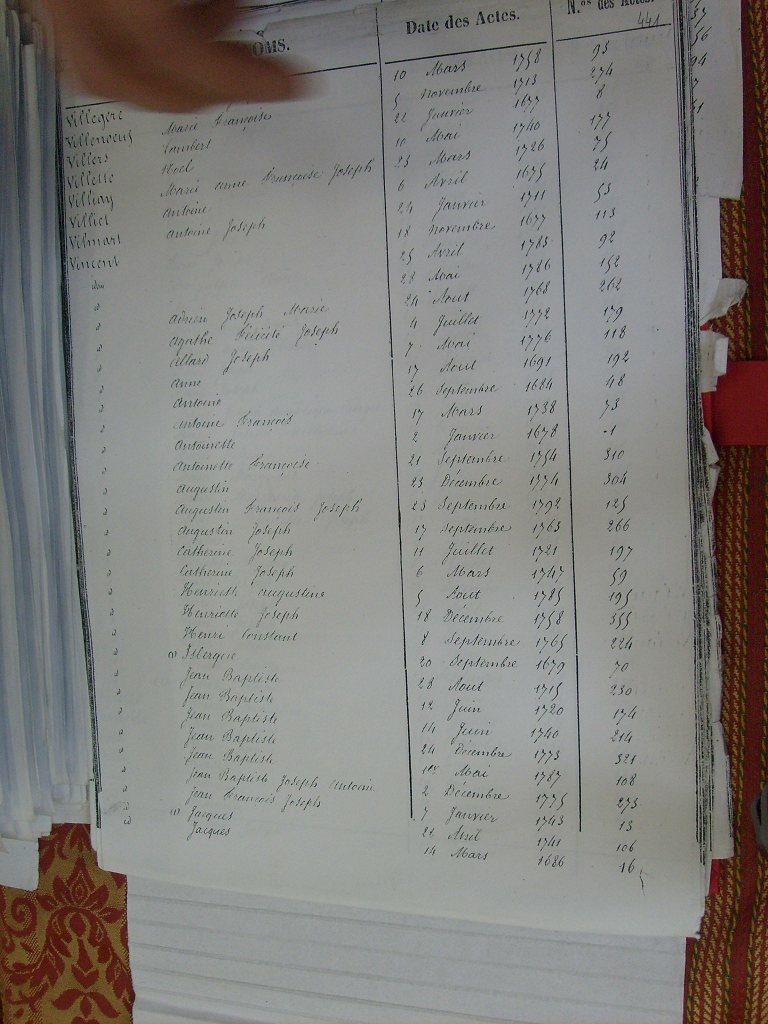 OMS.
Date des Actes.
N.os des Actes.
441
Villegere
Villeneuf
Villers
Villette
Villiay
Villiet
Vilmart
Vincent
Marie Françoise
Lambert
Noël
Marie anne Francoise Joseph
Antoine
Antoine Joseph
Adrien Joseph Marie
Agathe Félicité Joseph
Allard Joseph
Anne
Antoine
Antoine François
Antoinette
Antoinette Françoise
Augustin
Augustin François Joseph
Augustin Joseph
Catherine Joseph
Catherine Joseph
Henriette Augustine
Henriette Joseph
Henri Constant
Isbergue
Jean Baptiste
Jean Baptiste
Jean Baptiste
Jean Baptiste
Jean Baptiste
Jean Baptiste Joseph Antoine
Jean François Joseph
Jacques
Jacques
10 Mars 1758 93
5 Novembre 1713 274
22 Janvier 1677 8
10 Mai 1740 177
23 Mars 1726 75
6 Avril 1675 24
24 Janvier 1711 53
18 Novembre 1677 113
25 Avril 1785 92
28 Mai 1786 152
24 Aout 1768 262
4 Juillet 1772 179
7 Mai 1776 118
17 Aout 1691 192
26 Septembre 1684 48
17 Mars 1738 73
2 Janvier 1678 1
21 Septembre 1754 310
23 Décembre 1774 304
23 Septembre 1792 125
17 Septembre 1763 266
11 Juillet 1721 197
6 Mars 1747 59
5 Aout 1785 195
18 Décembre 1758 355
8 Septembre 1765 224
20 Septembre 1679 70
28 Aout 1715 230
12 Juin 1720 174
14 Juin 1740 214
24 Décembre 1773 321
1er Mai 1787 108
2 Décembre 1775 273
7 Janvier 1743 13
22 Avril 1741 106
14 Mars 1686 16